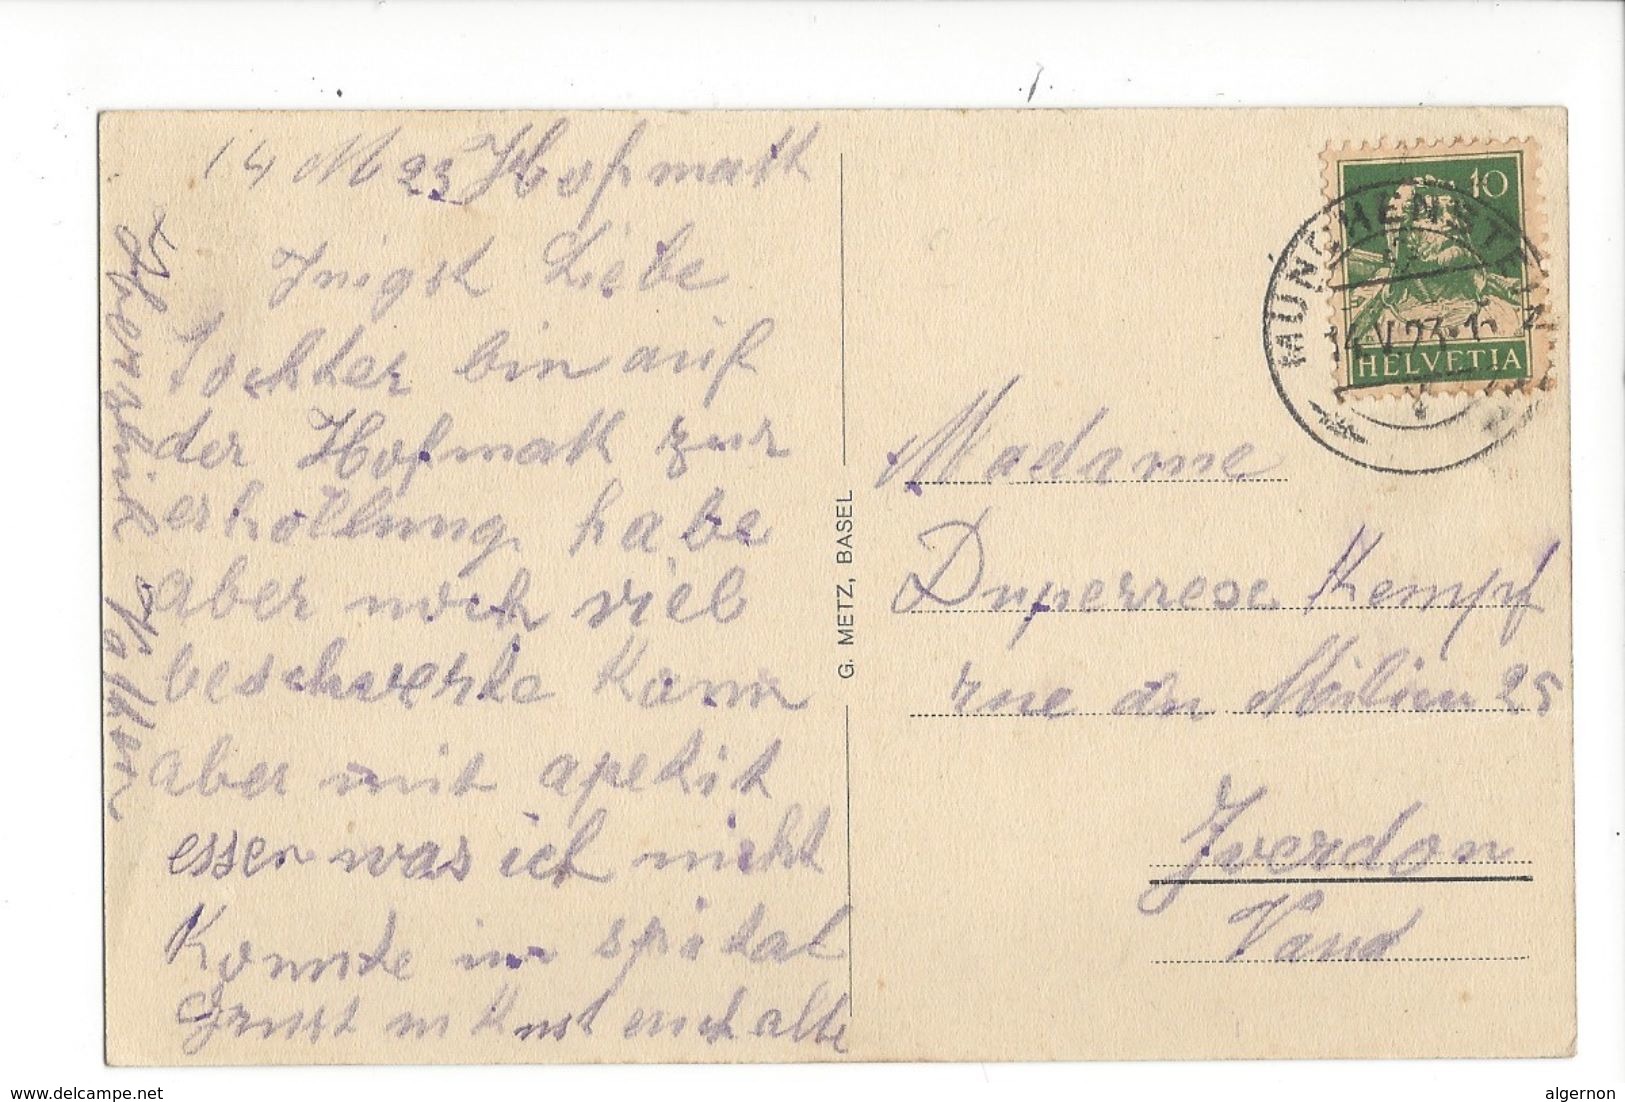 14 M 23 Hofmatt
Inigst Liebe
Tochter bin auf
der Hofmatt zur
erhollung habe
aber noch vieb
beschwerte Kann
aber mit apetit
essen was ich nicht
Konnte im spital
Grust u Kust euch alle
Vater
G. METZ, BASEL
10
HELVETIA
MÜNCHENSTEIN
14.V.23
Madame
Duperrese Kempf
rue du Milieu 25
Yverdon
Vaud
delcampe.net
algernon